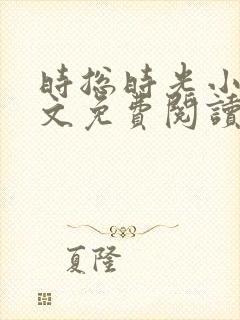 時總時光小
文免費閱讀
夏隆